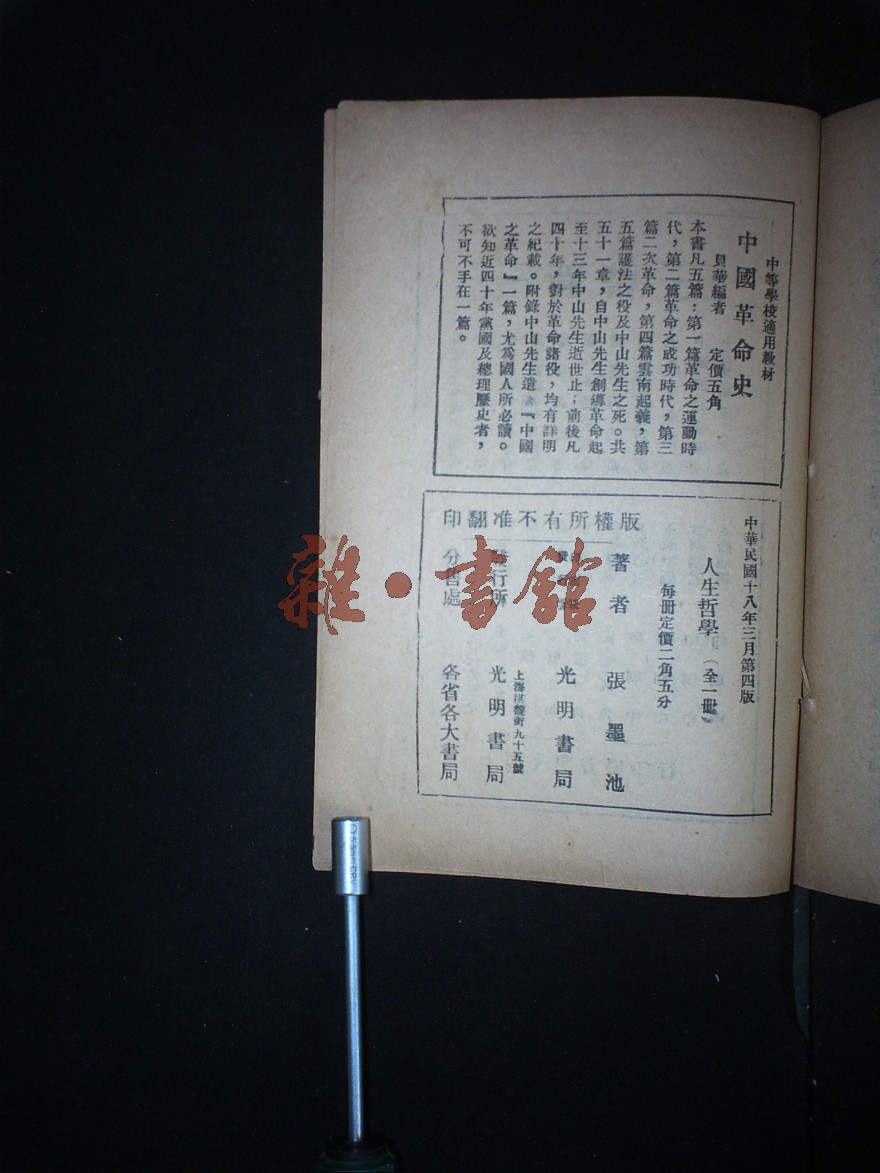 中等學校適用教材
中國革命史
貝華編者 定價五角
本書凡五篇：第一篇革命之運動時
代，第二篇革命之成功時代，第三
篇二次革命，第四篇雲南起義，第
五篇護法之役及中山先生之死。共
五十一章，自中山先生創導革命起
至十三年中山先生逝世止；前後凡
四十年，對於革命諸役，均有詳明
之紀載。附錄中山先生遺 『中國
之革命』一篇，尤爲國人所必讀。
欲知近四十年黨國及總理歷史者，
不可不手在一篇。
中華民國十八年三月第四版
人生哲學（全一冊）
每冊定價二角五分
著者 張墨池
光明書局
上海 街九十五號
發行所 光明書局
分售處 各省各大書局
版權所有不准翻印
雜·書館
5.5mm CRV